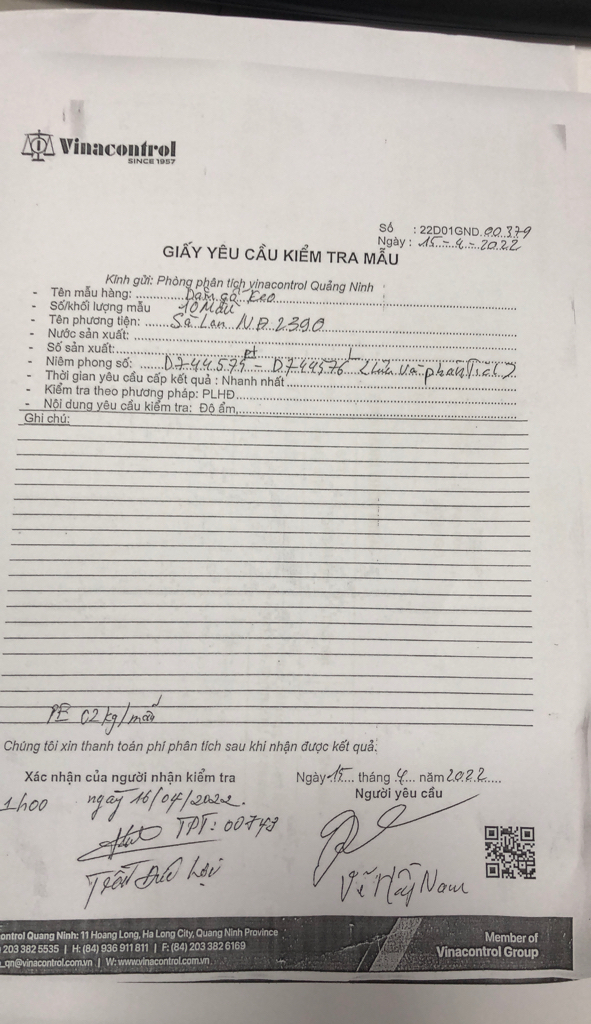 Vinacontrol
SINCE 1957
Số : 22D01GND.00379
Ngày : 15-4-2022
GIẤY YÊU CẦU KIỂM TRA MẪU
Kính gửi: Phòng phân tích vinacontrol Quảng Ninh
- Tên mẫu hàng: Dăm gỗ keo
- Số/khối lượng mẫu 10 Mẫu
- Tên phương tiện: Sà Lan NĐ 2390
- Nước sản xuất:
- Số sản xuất:
- Niêm phong số: D744575 pt - D744576 L (Lưu và phân tích)
- Thời gian yêu cầu cấp kết quả : Nhanh nhất
- Kiểm tra theo phương pháp: PLHĐ
- Nội dung yêu cầu kiểm tra: Độ ẩm
Ghi chú:
PE 02kg/mẫu
Chúng tôi xin thanh toán phí phân tích sau khi nhận được kết quả.
Xác nhận của người nhận kiểm tra
Ngày 15 tháng 4 năm 2022
Người yêu cầu
1h00 ngày 16/04/2022.
TPT: 00743
Nam
ontrol Quang Ninh: 11 Hoang Long, Ha Long City, Quang Ninh Province
203 382 5535 | H: (84) 936 911 811 | F: (84) 203 382 6169
_qn@vinacontrol.com.vn | W: www.vinacontrol.com.vn
Member of
Vinacontrol Group